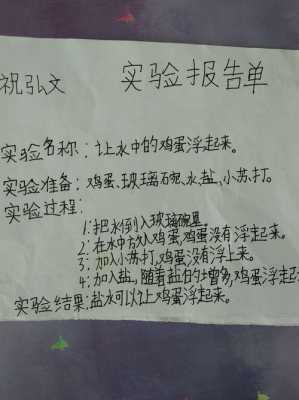 祝弘文 实验报告单
实验名称:让水中的鸡蛋浮起来。
实验准备:鸡蛋、玻璃碗、水、盐、小苏打。
实验过程:
1:把水倒入玻璃碗里
2:在水中放入鸡蛋,鸡蛋没有浮起来。
3:加入小苏打,鸡蛋没有浮上来。
4:加入盐,随着盐的增多,鸡蛋浮起
实验结果:盐水可以让鸡蛋浮起来。